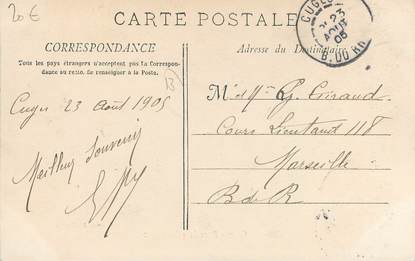 20€
CARTE POSTALE
CUGES
23
AOUT
05
B. DU RH.
CORRESPONDANCE
Tous les pays étrangers n'acceptent pas la Correspon-
dance au recto. Se renseigner à la Poste.
Adresse du Destinataire
Cuges 23 Août 1905
Meilleur Souvenir
M. et Mme G. Giraud
Cours Lieutaud 118
Marseille
B de R